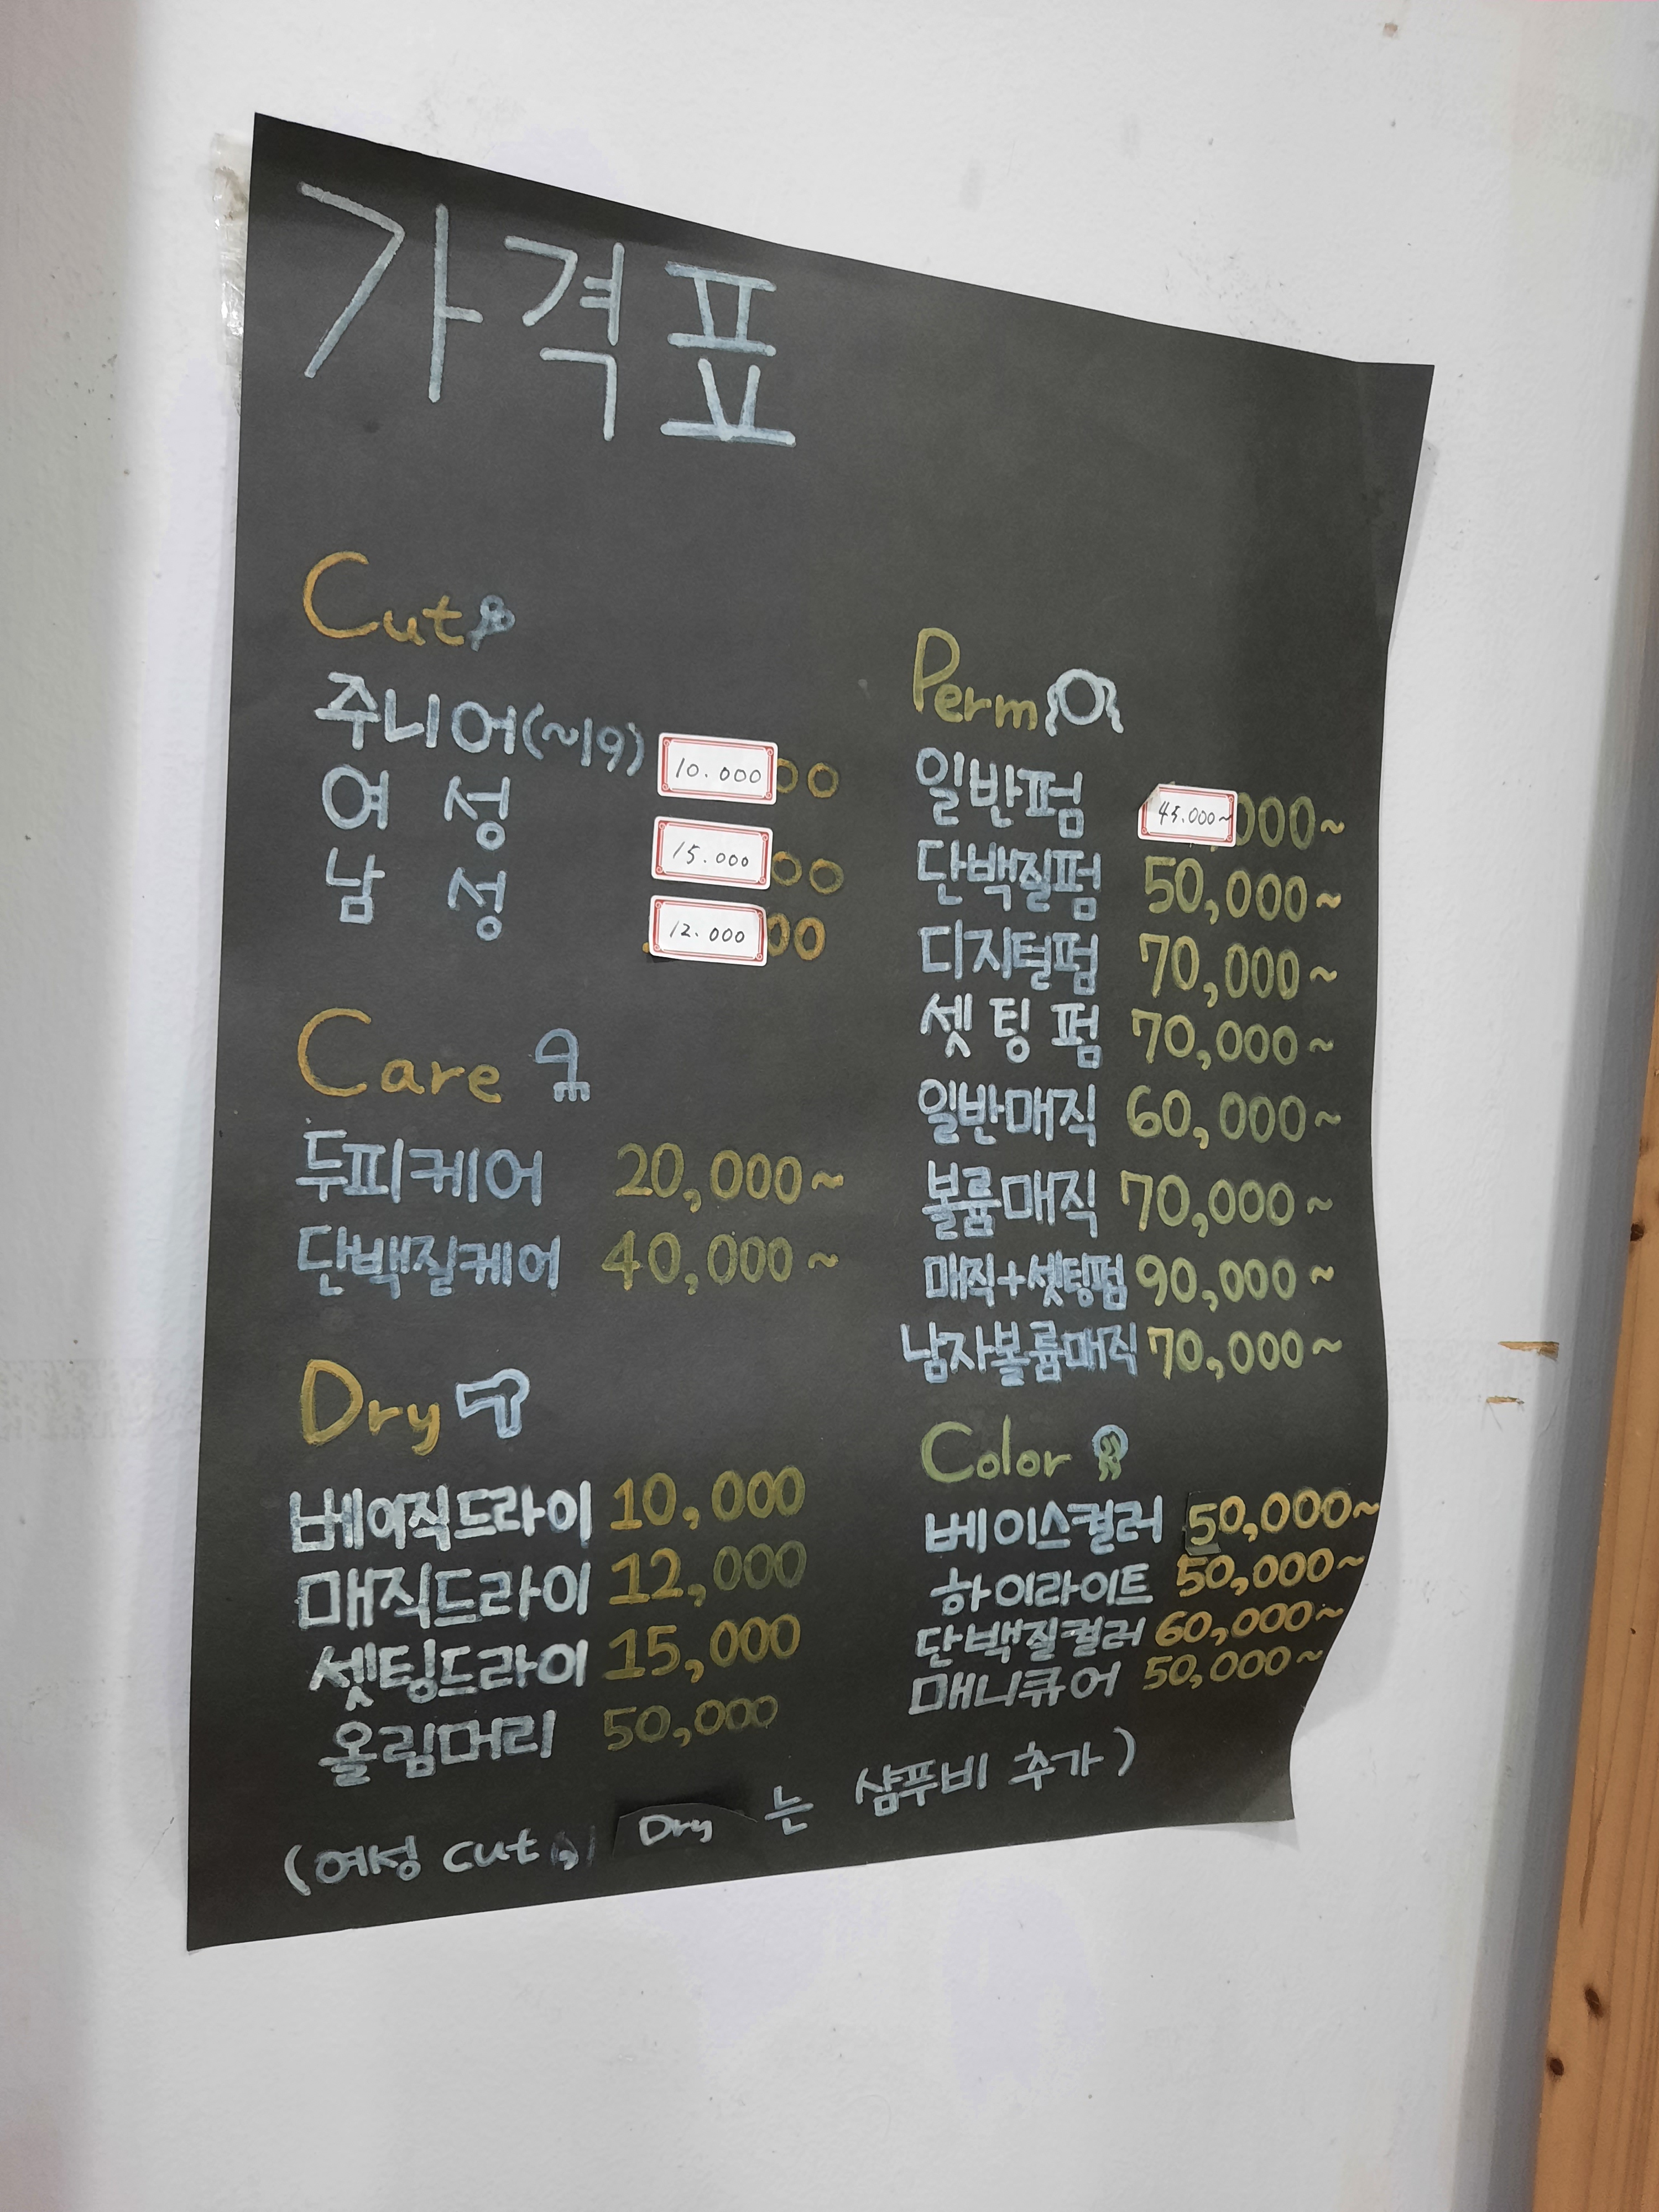 가격표
Cut
주니어(~19) 10.000 00
여 성 15.000 00
남 성 12.000 00
Care
두피케어 20,000~
단백질케어 40,000~
Dry
베이직드라이 10,000
매직드라이 12,000
셋팅드라이 15,000
올림머리 50,000
Perm
일반펌 45.000~ 000~
단백질펌 50,000~
디지털펌 70,000~
셋팅펌 70,000~
일반매직 60,000~
볼륨매직 70,000~
매직+셋팅펌 90,000~
남자볼륨매직 70,000~
Color
베이스컬러 50,000~
하이라이트 50,000~
단백질컬러 60,000~
매니큐어 50,000~
(여성 cut, Dry 는 샴푸비 추가)